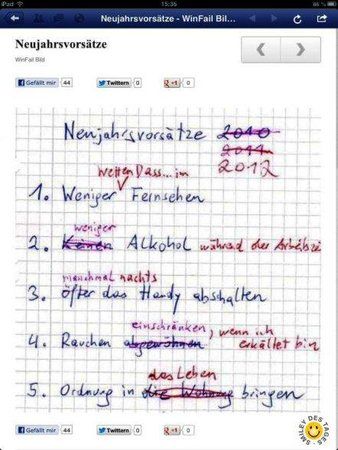 iPad 15:35 86 %
Neujahrsvorsätze - WinFail Bil…
Neujahrsvorsätze
WinFail Bild
Gefällt mir 44 Twittern 0 +1 0
Neujahrsvorsätze 2010
2011
2012
Wetten Dass... im
1. Weniger Fernsehen
weniger
2. Keinen Alkohol während der Arbeitszei
manchmal nachts
3. öfter das Handy abshalten
einschränken, wenn ich
4. Rauchen abgewöhnen erkältet bin
das Leben
5. Ordnung in die Wohnung bringen
Gefällt mir 44 Twittern 0 +1 0
SMILEY DES TAGES